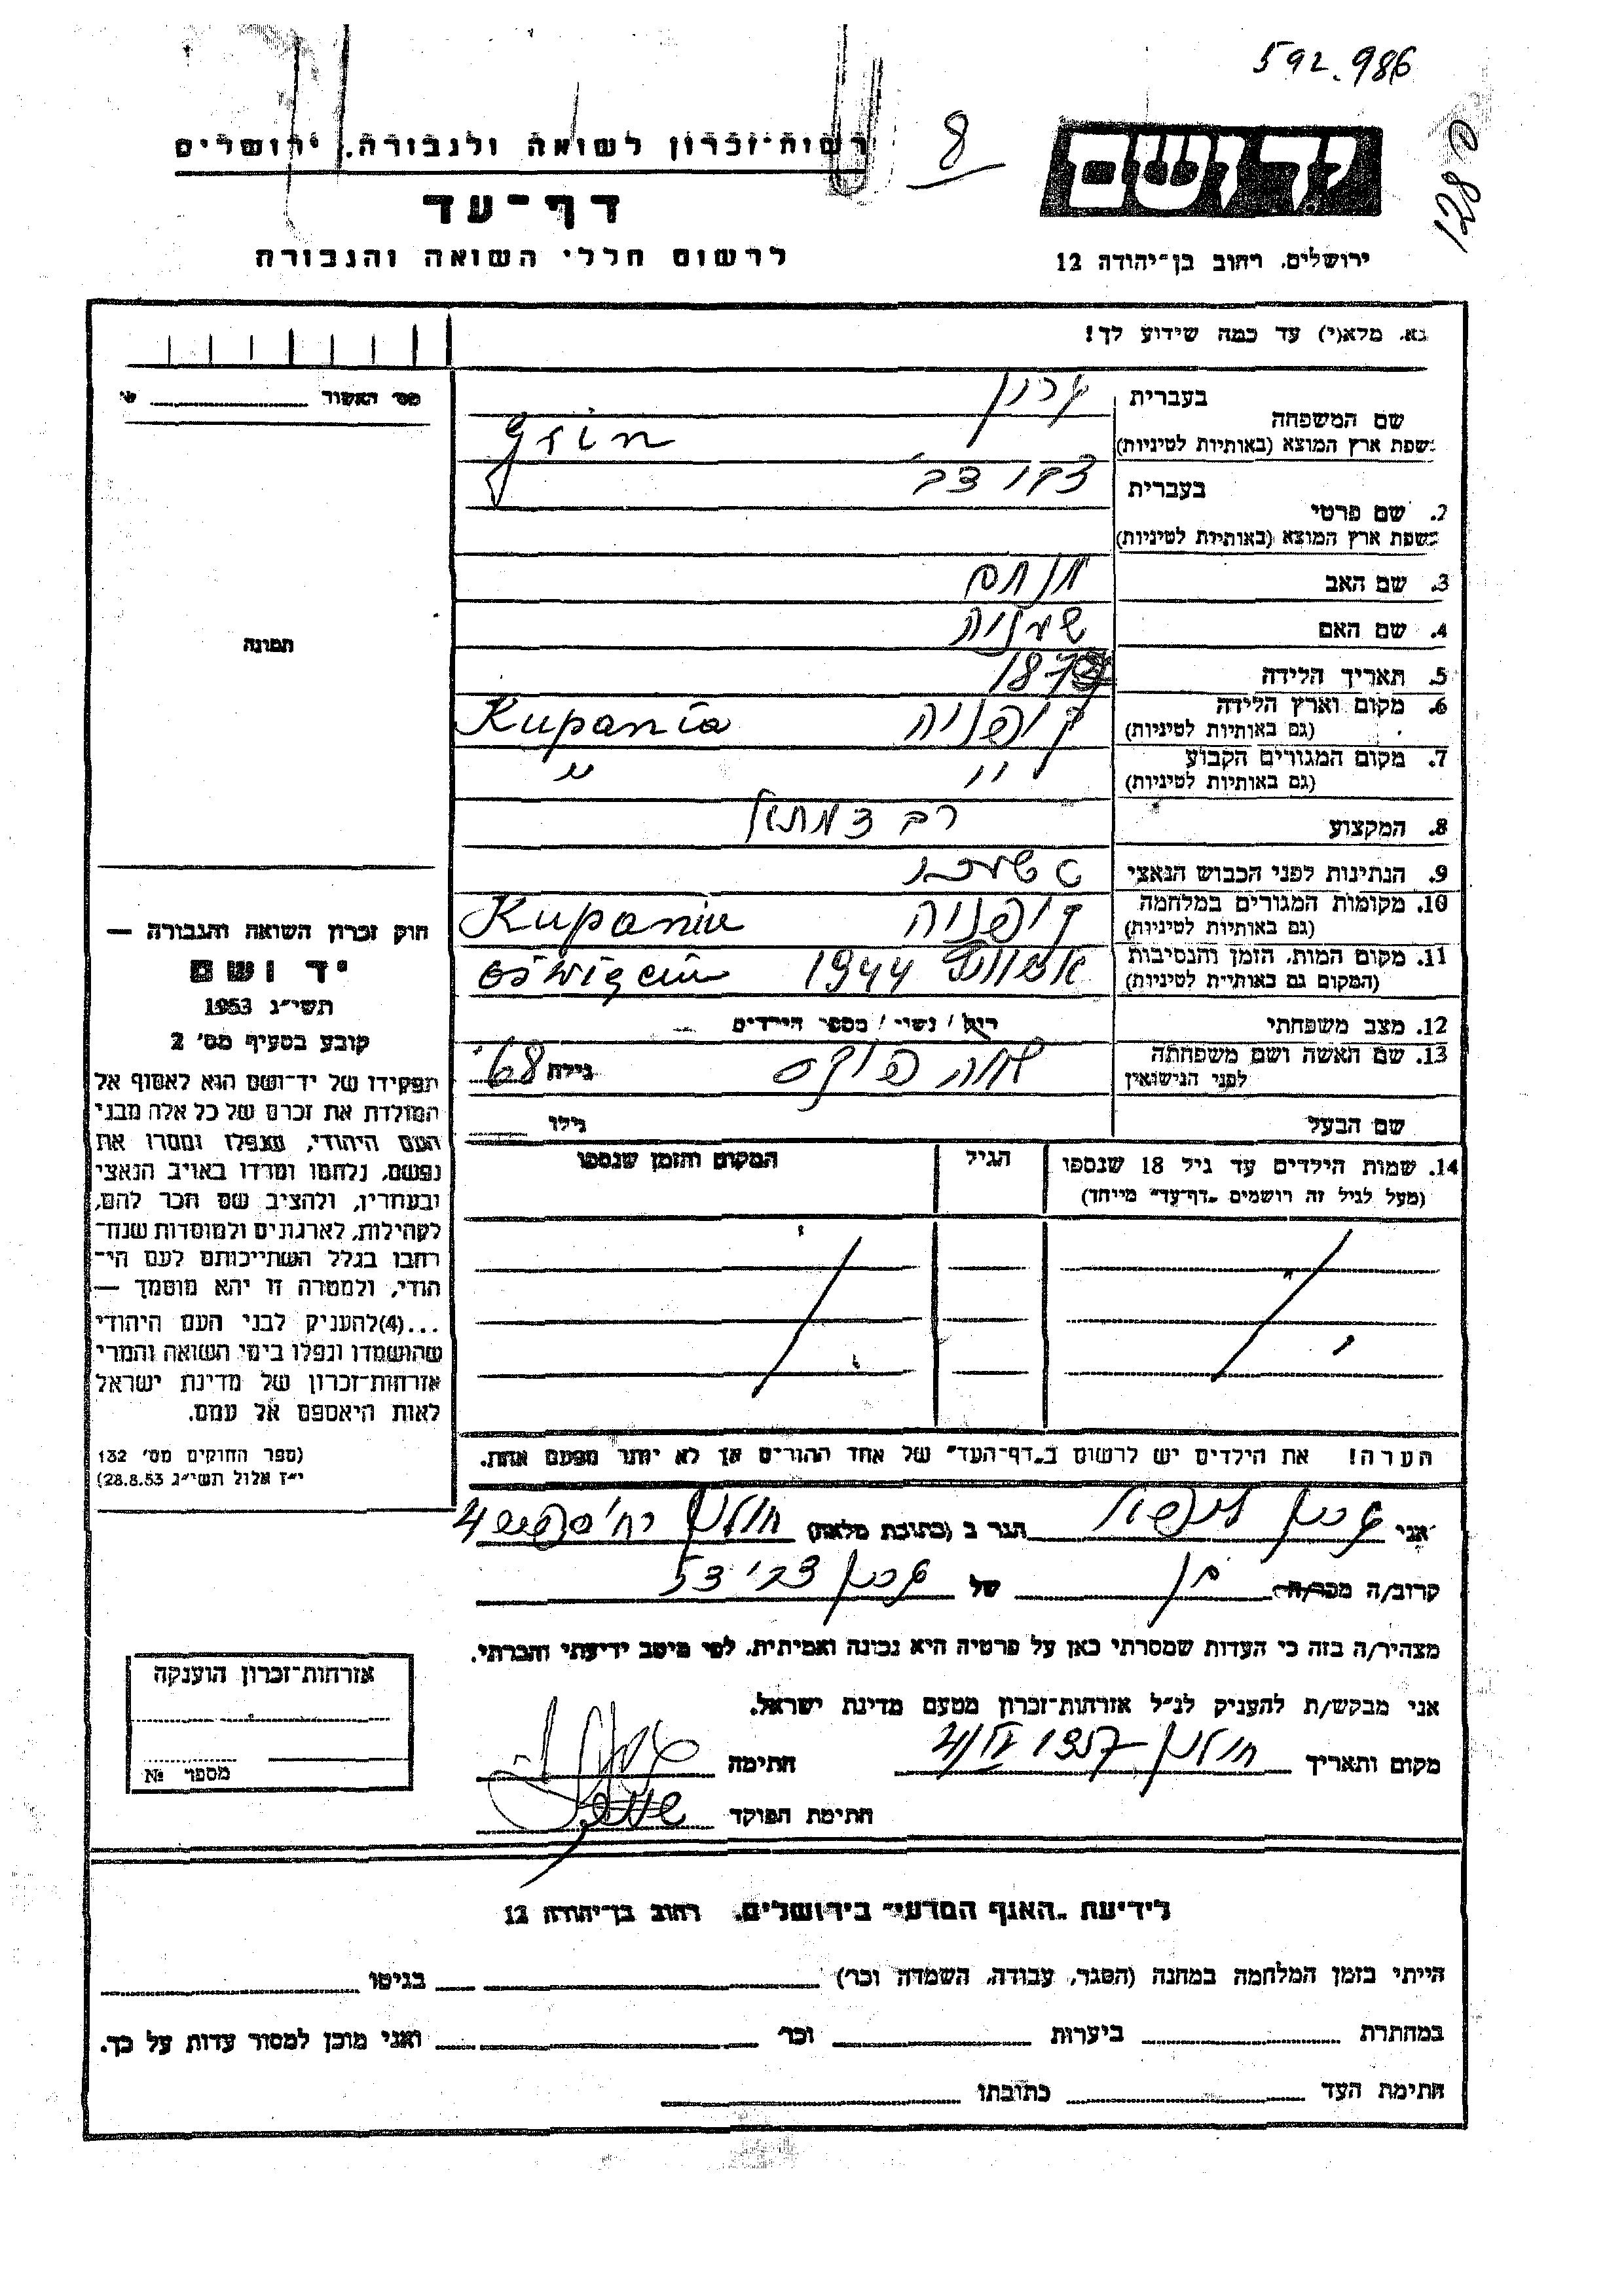 592.986
8
128 פ
יד ושם
רשות-זכרון לשואה ולגבורה, ירושלים
דף-עד
לרשום חללי השואה והגבורה
ירושלים, רחוב בן-יהודה 12
נא, מלא(י) עד כמה שידוע לך!
מס' האשור
שם המשפחה
בעברית
בשפת ארץ המוצא (באותיות לטיניות)
Grin
2. שם פרטי
בעברית
בשפת ארץ המוצא (באותיות לטיניות)
3. שם האב מנחם
4. שם האם
5. תאריך הלידה
6. מקום וארץ הלידה
(גם באותיות לטיניות)
קופניה Kupania
7. מקום המגורים הקבוע
(גם באותיות לטיניות)
" "
8. המקצוע
9. הנתינות לפני הכבוש הנאצי
10. מקומות המגורים במלחמה
(גם באותיות לטיניות)
קופניה Kupania
11. מקום המות, הזמן והנסיבות
(המקום גם באותיות לטיניות)
1944
12. מצב משפחתי רוק / נשוי / מספר הילדים
13. שם האשה ושם משפחתה
לפני הנישואין
חוה פוקס גילה 68
שם הבעל גילו
14. שמות הילדים עד גיל 18 שנספו
(מעל לגיל זה רושמים "דף-עד" מיוחד)
הגיל
המקום והזמן שנספו
הערה! את הילדים יש לרשום ב"דף-העד" של אחד ההורים אך לא יותר מפעם אחת.
תמונה
חוק זכרון השואה והגבורה —
יד ושם
תשי"ג 1953
קובע בסעיף מס' 2
תפקידו של יד-ושם הוא לאסוף אל
המולדת את זכרם של כל אלה מבני
העם היהודי, שנפלו ומסרו את
נפשם, נלחמו ומרדו באויב הנאצי
ובעוזריו, ולהציב שם וזכר להם,
לקהילות, לארגונים ולמוסדות שנח־
רבו בגלל השתייכותם לעם הי־
הודי, ולמטרה זו יהא מוסמך —
...(4) להעניק לבני העם היהודי
שהושמדו ונפלו בימי השואה והמרי
אזרחות-זכרון של מדינת ישראל
לאות היאספם אל עמם.
(ספר החוקים מס' 132
י"ז אלול תשי"ג 28.8.53)
אני הגר ב (כתובת מלאה) חולון
קרוב/ה מכר/ה בן של
מצהיר/ה בזה כי העדות שמסרתי כאן על פרטיה היא נכונה ואמיתית, לפי מיטב ידיעתי והכרתי.
אני מבקש/ת להעניק לנ"ל אזרחות-זכרון מטעם מדינת ישראל.
מקום ותאריך חולון 1957 חתימה
חתימת הפוקד
אזרחות-זכרון הוענקה
מספר №
לידיעת "האגף המדעי" בירושלים, רחוב בן-יהודה 12
הייתי בזמן המלחמה במחנה (הסגר, עבודה, השמדה וכו') בגיטו
במחתרת ביערות וכו' ואני מוכן למסור עדות על כך.
חתימת העד כתובתו